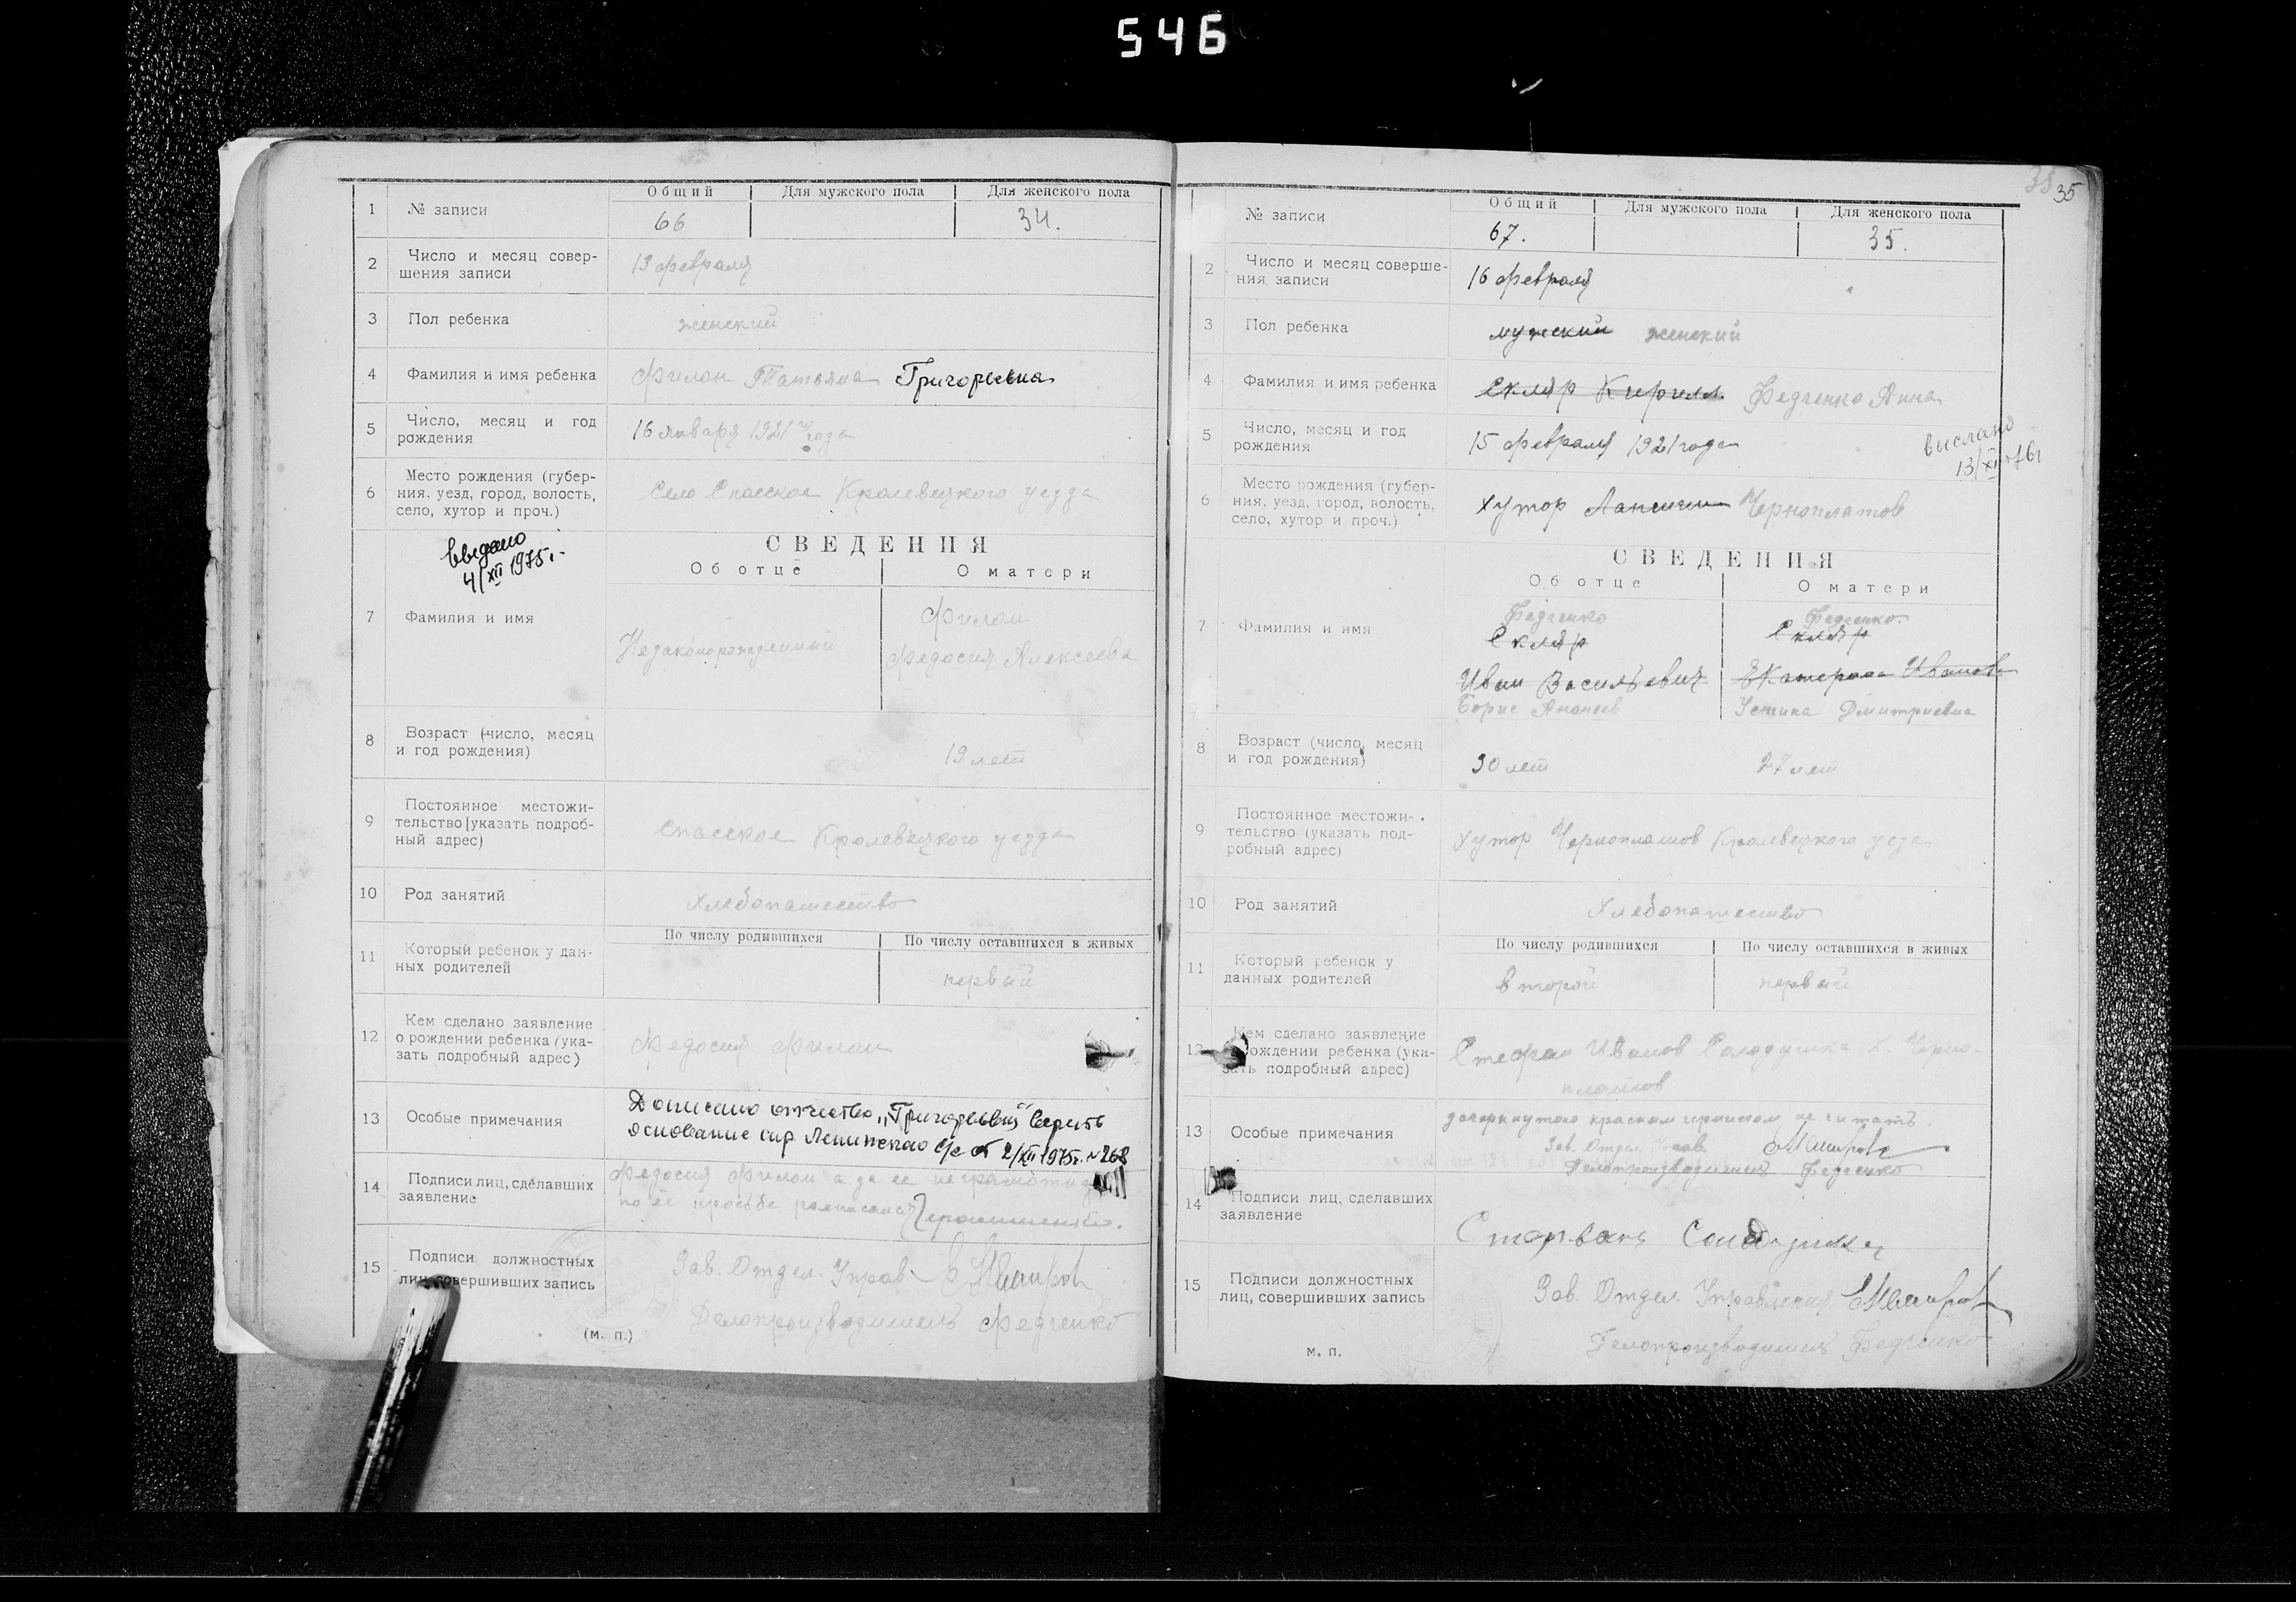 546
Общий Для мужского пола Для женского пола
1 № записи 66 34.
2 Число и месяц совер-
шения записи 13 февраля
3 Пол ребенка женский
4 Фамилия и имя ребенка Филон Татьяна Григорьевна
5 Число, месяц и год
рождения 16 января 1921 года
6 Место рождения (губер-
ния, уезд, город, волость,
село, хутор и проч.) Село Спасское Кролевецкого уезда
выдано
4/XII 1975г.
СВЕДЕНИЯ
Об отце О матери
7 Фамилия и имя Незаконорожденный Филон
Федосия Алексеевна
8 Возраст (число, месяц
и год рождения) 19 лет
9 Постоянное местожи-
тельство (указать подроб-
ный адрес) Спасское Кролевецкого уезда
10 Род занятий Хлебопашество
11 Который ребенок у дан-
ных родителей
По числу родившихся По числу оставшихся в живых
первый
12 Кем сделано заявление
о рождении ребенка (ука-
зать подробный адрес) Федосия Филон
13 Особые примечания Дописано отчество „Григорьевна" верить
основание спр Ленинского с/с от 2/XII 1975г. № 268
14 Подписи лиц, сделавших
заявление Федосия Филон а за ее неграмотную
по её просьбе расписался
15 Подписи должностных
лиц, совершивших запись Зав. Отдел. Управ.
Делопроизводитель Федченко
(м. п.)
35
Общий Для мужского пола Для женского пола
№ записи 67. 35.
2 Число и месяц соверше-
ния записи 16 февраля
3 Пол ребенка мужский женский
4 Фамилия и имя ребенка Скляр Кирилл Федченко Анна
5 Число, месяц и год
рождения 15 февраля 1921 года
выслано
13/XI 76г
6 Место рождения (губер-
ния, уезд, город, волость,
село, хутор и проч.) хутор Черноплатов
СВЕДЕНИЯ
Об отце О матери
7 Фамилия и имя
Федченко Федченко
Скляр Скляр
Иван Васильевич Екатерина Иванова
Борис Ананьев Устина Дмитриевна
8 Возраст (число, месяц
и год рождения) 30 лет 27 лет
9 Постоянное местожи-
тельство (указать под-
робный адрес) Хутор Черноплатов Кролевецкого уезда
10 Род занятий Хлебопашество
11 Который ребенок у
данных родителей
По числу родившихся По числу оставшихся в живых
второй первый
12 Кем сделано заявление
о рождении ребенка (ука-
зать подробный адрес) Стефан Иванов Солодушка х. Черно-
платов
13 Особые примечания зачеркнутого красным чернилом не читать.
Зав. Отдел.
Делопроизводитель Федченко
14 Подписи лиц, сделавших
заявление
15 Подписи должностных
лиц, совершивших запись Зав. Отдел. Управления
Делопроизводитель Федченко
м. п.